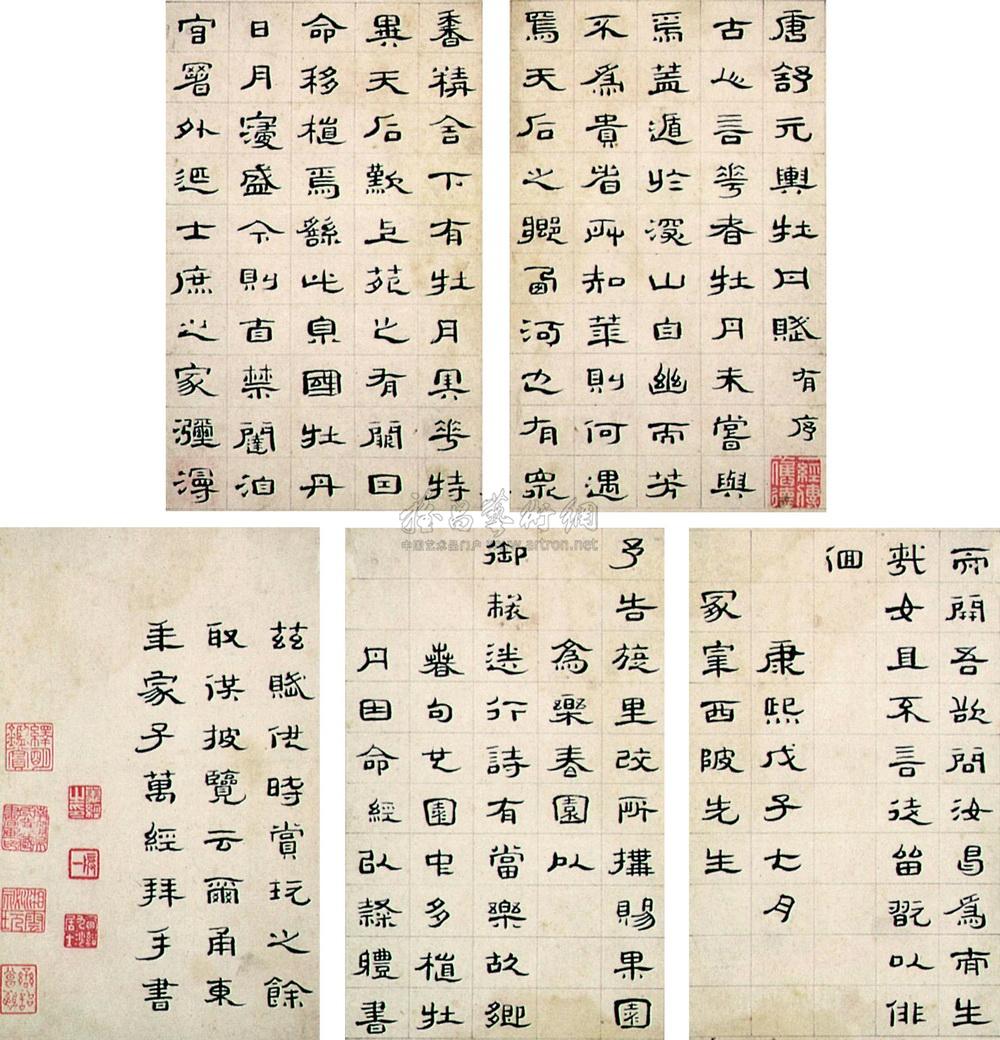 唐舒元輿牡丹賦有序
古之言花者牡丹未嘗與
焉蓋遁於深山自幽而芳
不為貴者所知華則何遇
焉天后之鄉西河也有眾
香精舍下有牡丹其花特
異天后歎上苑之有闕因
命移植焉繇此京國牡丹
日月寖盛今則自禁闥洎
官署外延士庶之家瀰漫
而開吾欲問汝曷為而生
哉女且不言徒留翫以俳
佪
康熙戊子七月
冢宰西陂先生
予告旋里改所搆賜果園
為樂春園以
御製送行詩有當樂故鄉
春句也園中多植牡
丹因命經以隸體書
茲賦供時賞玩之餘
取供披覽云爾甬東
年家子萬經拜手書
雅昌藝術網
中国艺术品门户 www.artron.net